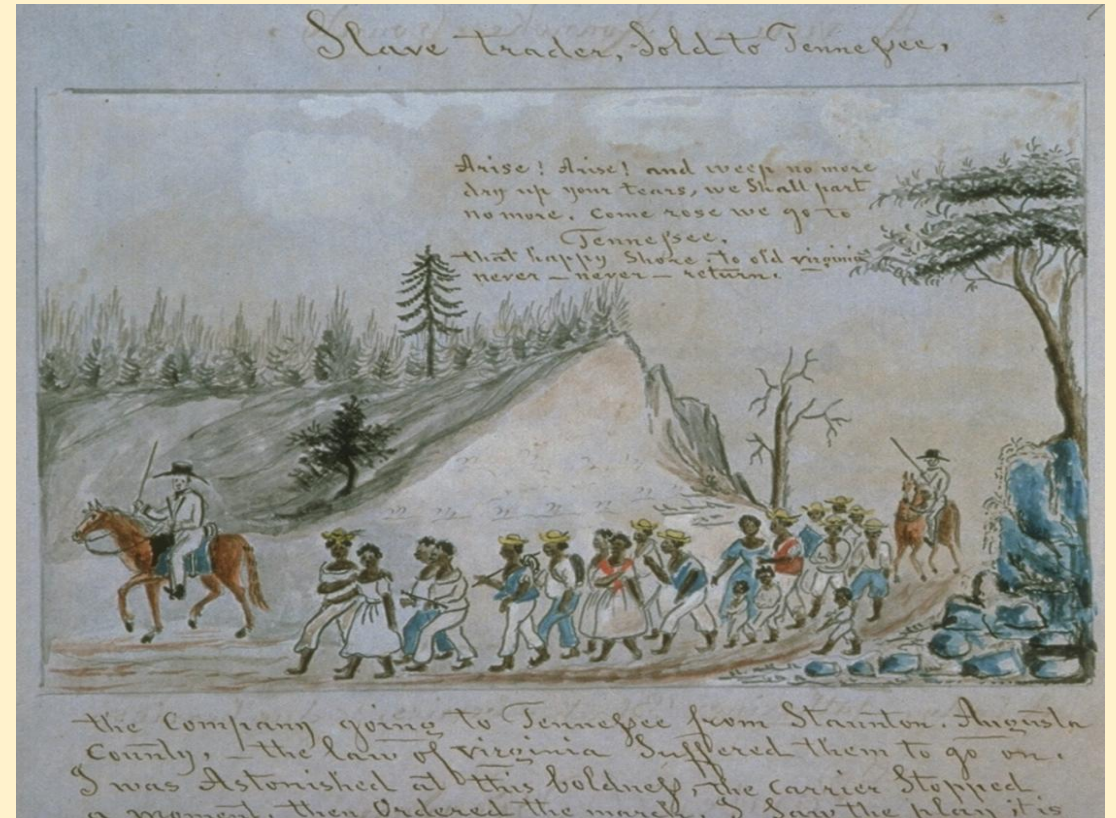 Slave trader, Sold to Tennessee,
Arise! Arise! and weep no more
dry up your tears, we Shall part
no more. Come rose we go to
Tennessee.
that happy Shore. to old virginia
never – never – return.
the Company going to Tennessee from Staunton. Augusta
County, – the law of virginia Suffered them to go on.
I was Astonished at this boldness, the carrier Stopped
a moment, then Ordered the march, I Saw the play it is